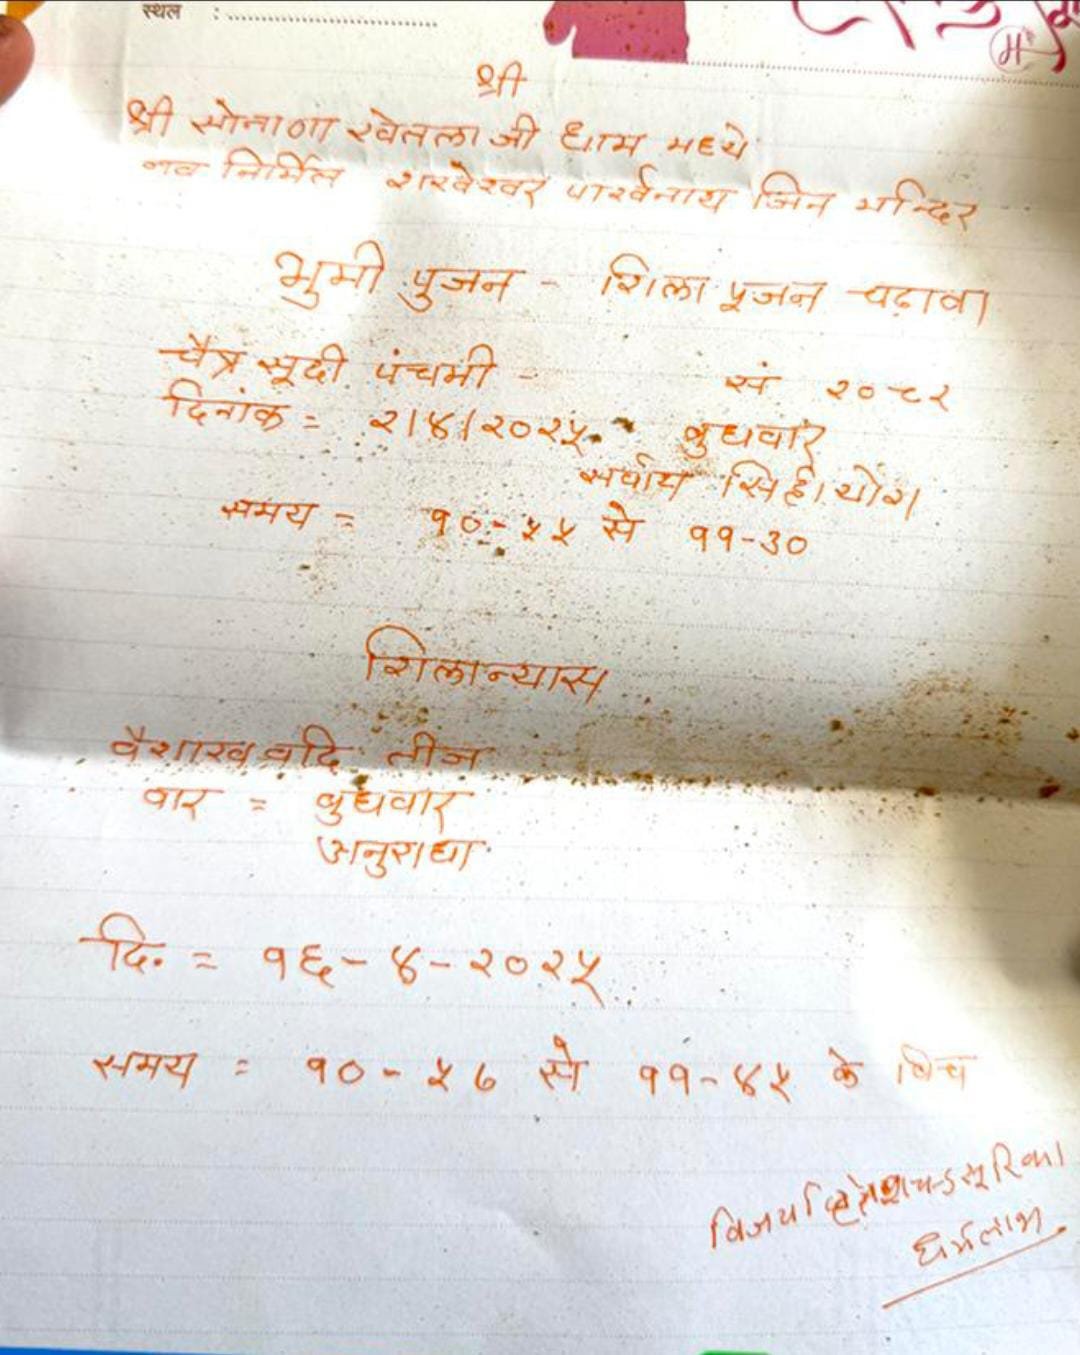 स्थल :
श्री
श्री सोनाणा खेतलाजी धाम मध्ये
नव निर्मित शखेश्वर पार्श्वनाथ जिन मन्दिर
भुमी पुजन - शिला पूजन चढ़ावा
चैत्र सूदी पंचमी - सं २०८२
दिनांक = २/४/२०२५ बुधवार
सर्वाथ सिद्धि योग
समय = १०-५५ से ११-३०
शिलान्यास
वैशाख वदि तीज
वार = बुधवार
अनुराधा
दि. = १६-४-२०२५
समय = १०-५७ से ११-४५ के बिच
धर्मलाभ